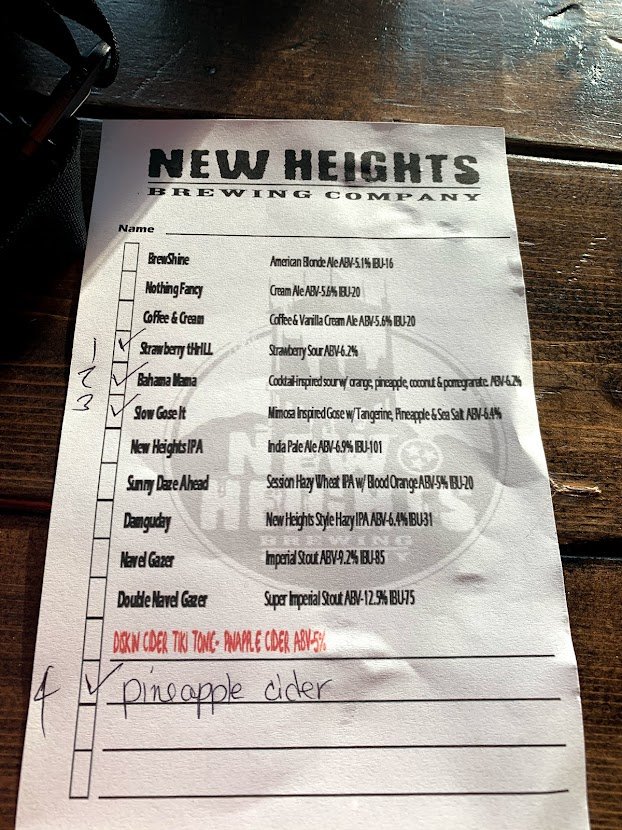 NEW HEIGHTS
BREWING COMPANY
Name
BrewShine American Blonde Ale ABV-5.1% IBU-16
Nothing Fancy Cream Ale ABV-5.6% IBU-20
Coffee & Cream Coffee & Vanilla Cream Ale ABV-5.6% IBU-20
1 Strawberry tHrILL Strawberry Sour ABV-6.2%
2 Bahama Mama Cocktail-inspired sour w/ orange, pineapple, coconut & pomegranate. ABV-6.2%
3 Slow Gose It Mimosa Inspired Gose w/ Tangerine, Pineapple & Sea Salt ABV-6.4%
New Heights IPA India Pale Ale ABV-6.9% IBU-101
Sunny Daze Ahead Session Hazy Wheat IPA w/ Blood Orange ABV-5% IBU-20
Damguday New Heights Style Hazy IPA ABV-6.4% IBU-31
Navel Gazer Imperial Stout ABV-9.2% IBU-85
Double Navel Gazer Super Imperial Stout ABV-12.5% IBU-75
DISKIN CIDER TIKI TONIC- PINAPPLE CIDER ABV-5%
4 pineapple cider
NEW
HEIGHTS
BREWING
COMPANY